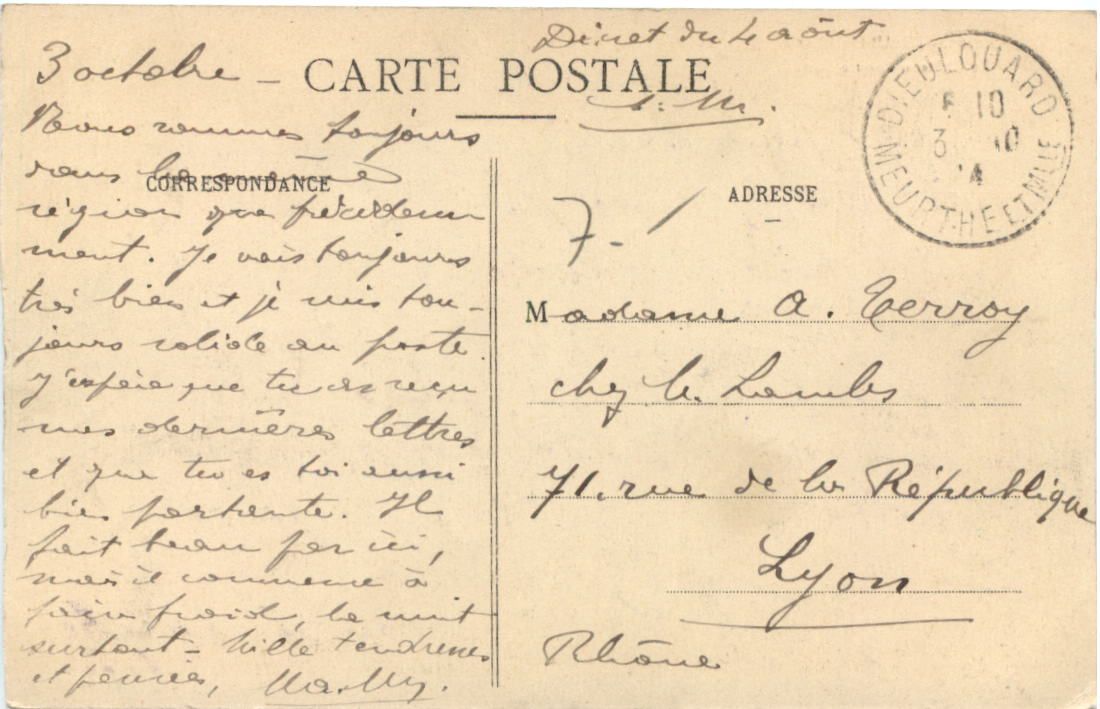 Décret du 4 août
3 octobre - CARTE POSTALE
S. M.
Nous sommes toujours
dans la même
CORRESPONDANCE
région que précédem
ment. Je vais toujours
très bien et je suis tou-
jours solide au poste.
J'espère que tu as reçu
mes dernières lettres
et que tu es toi aussi
bien portante. Il
fait beau par ici,
mais il commence à
faire froid, la nuit
surtout - Mille tendresses
et pensées,
DIEULOUARD
MEURTHE ET MLLE
10
3 10
14
ADRESSE
7 - /
Madame A. Terroy
chez
71, rue de la République
Lyon
Rhône